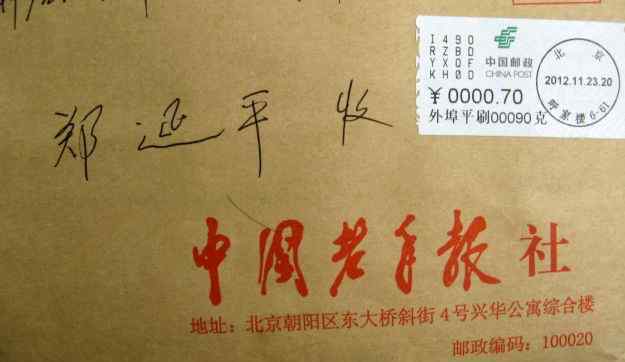 I490
RZBD
YXQF
KH0D
中国邮政
CHINA POST
¥0000.70
外埠平刷00090克
北京
2012.11.23.20
呼家楼6-61
郑延平 收
中国老年报社
地址：北京朝阳区东大桥斜街4号兴华公寓综合楼
邮政编码：100020